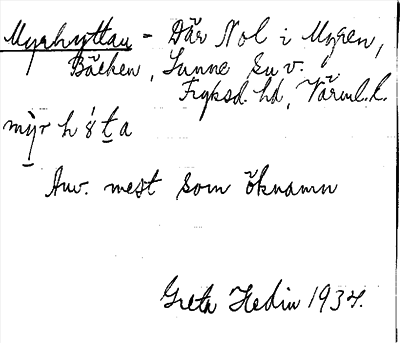 Myrhyttan - Där Nol i Myren,
Bäcken, Sunne Su v.
Fryksd. hd, Värml. l.
Anv. mest som öknamn
Greta Hedin 1934.